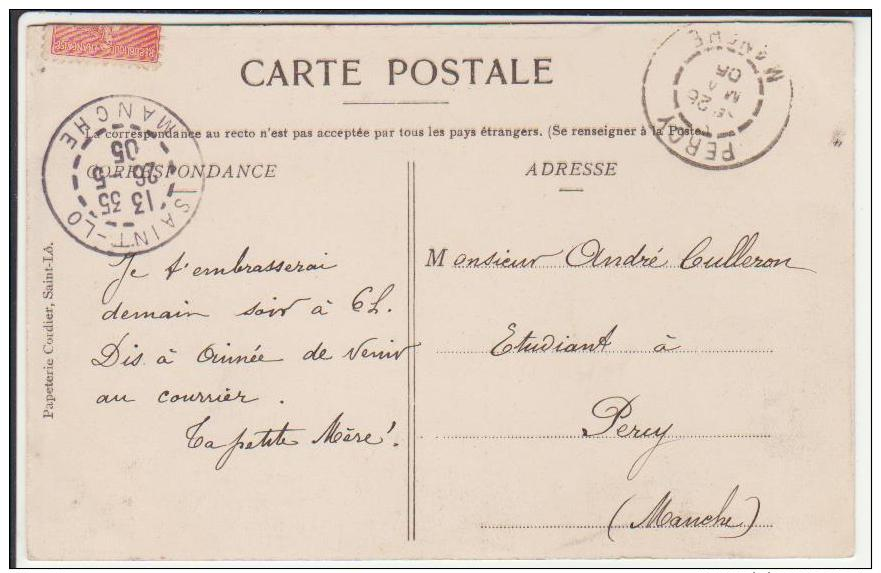 RÉPUBLIQUE FRANÇAISE
CARTE POSTALE
La correspondance au recto n'est pas acceptée par tous les pays étrangers. (Se renseigner à la Poste)
SAINT-LO
MANCHE
13 35
26 - 5
05
PERCY
MANCHE
26
MAI
05
CORRESPONDANCE
Je t'embrasserai
demain soir à 6 h.
Dis à Aimée de venir
au courrier.
Ta petite Mère!
ADRESSE
Monsieur André Culleron
Etudiant à
Percy
(Manche)
Papeterie Cordier, Saint-Lô.